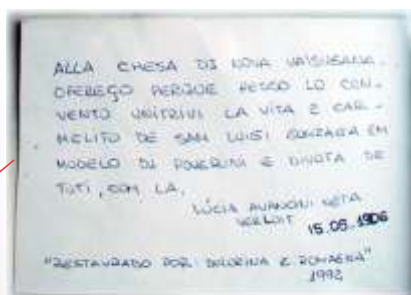 ALLA CHESA DI NOVA VALSUGANA.
OFEREÇO PERQUE RESCO LO CON-
VENTO UNITRIVI LA VITA E CAR-
MELITO DE SAN LUIGI GONZAGA EM
MODELO DI POVERINI E DIVOTA DE
TUTI, COM LA.
LÚCIA AVANCINI NETA
15.06.1906
"RESTAURADO POR: DOLORINA E ROMAGNA"
1992